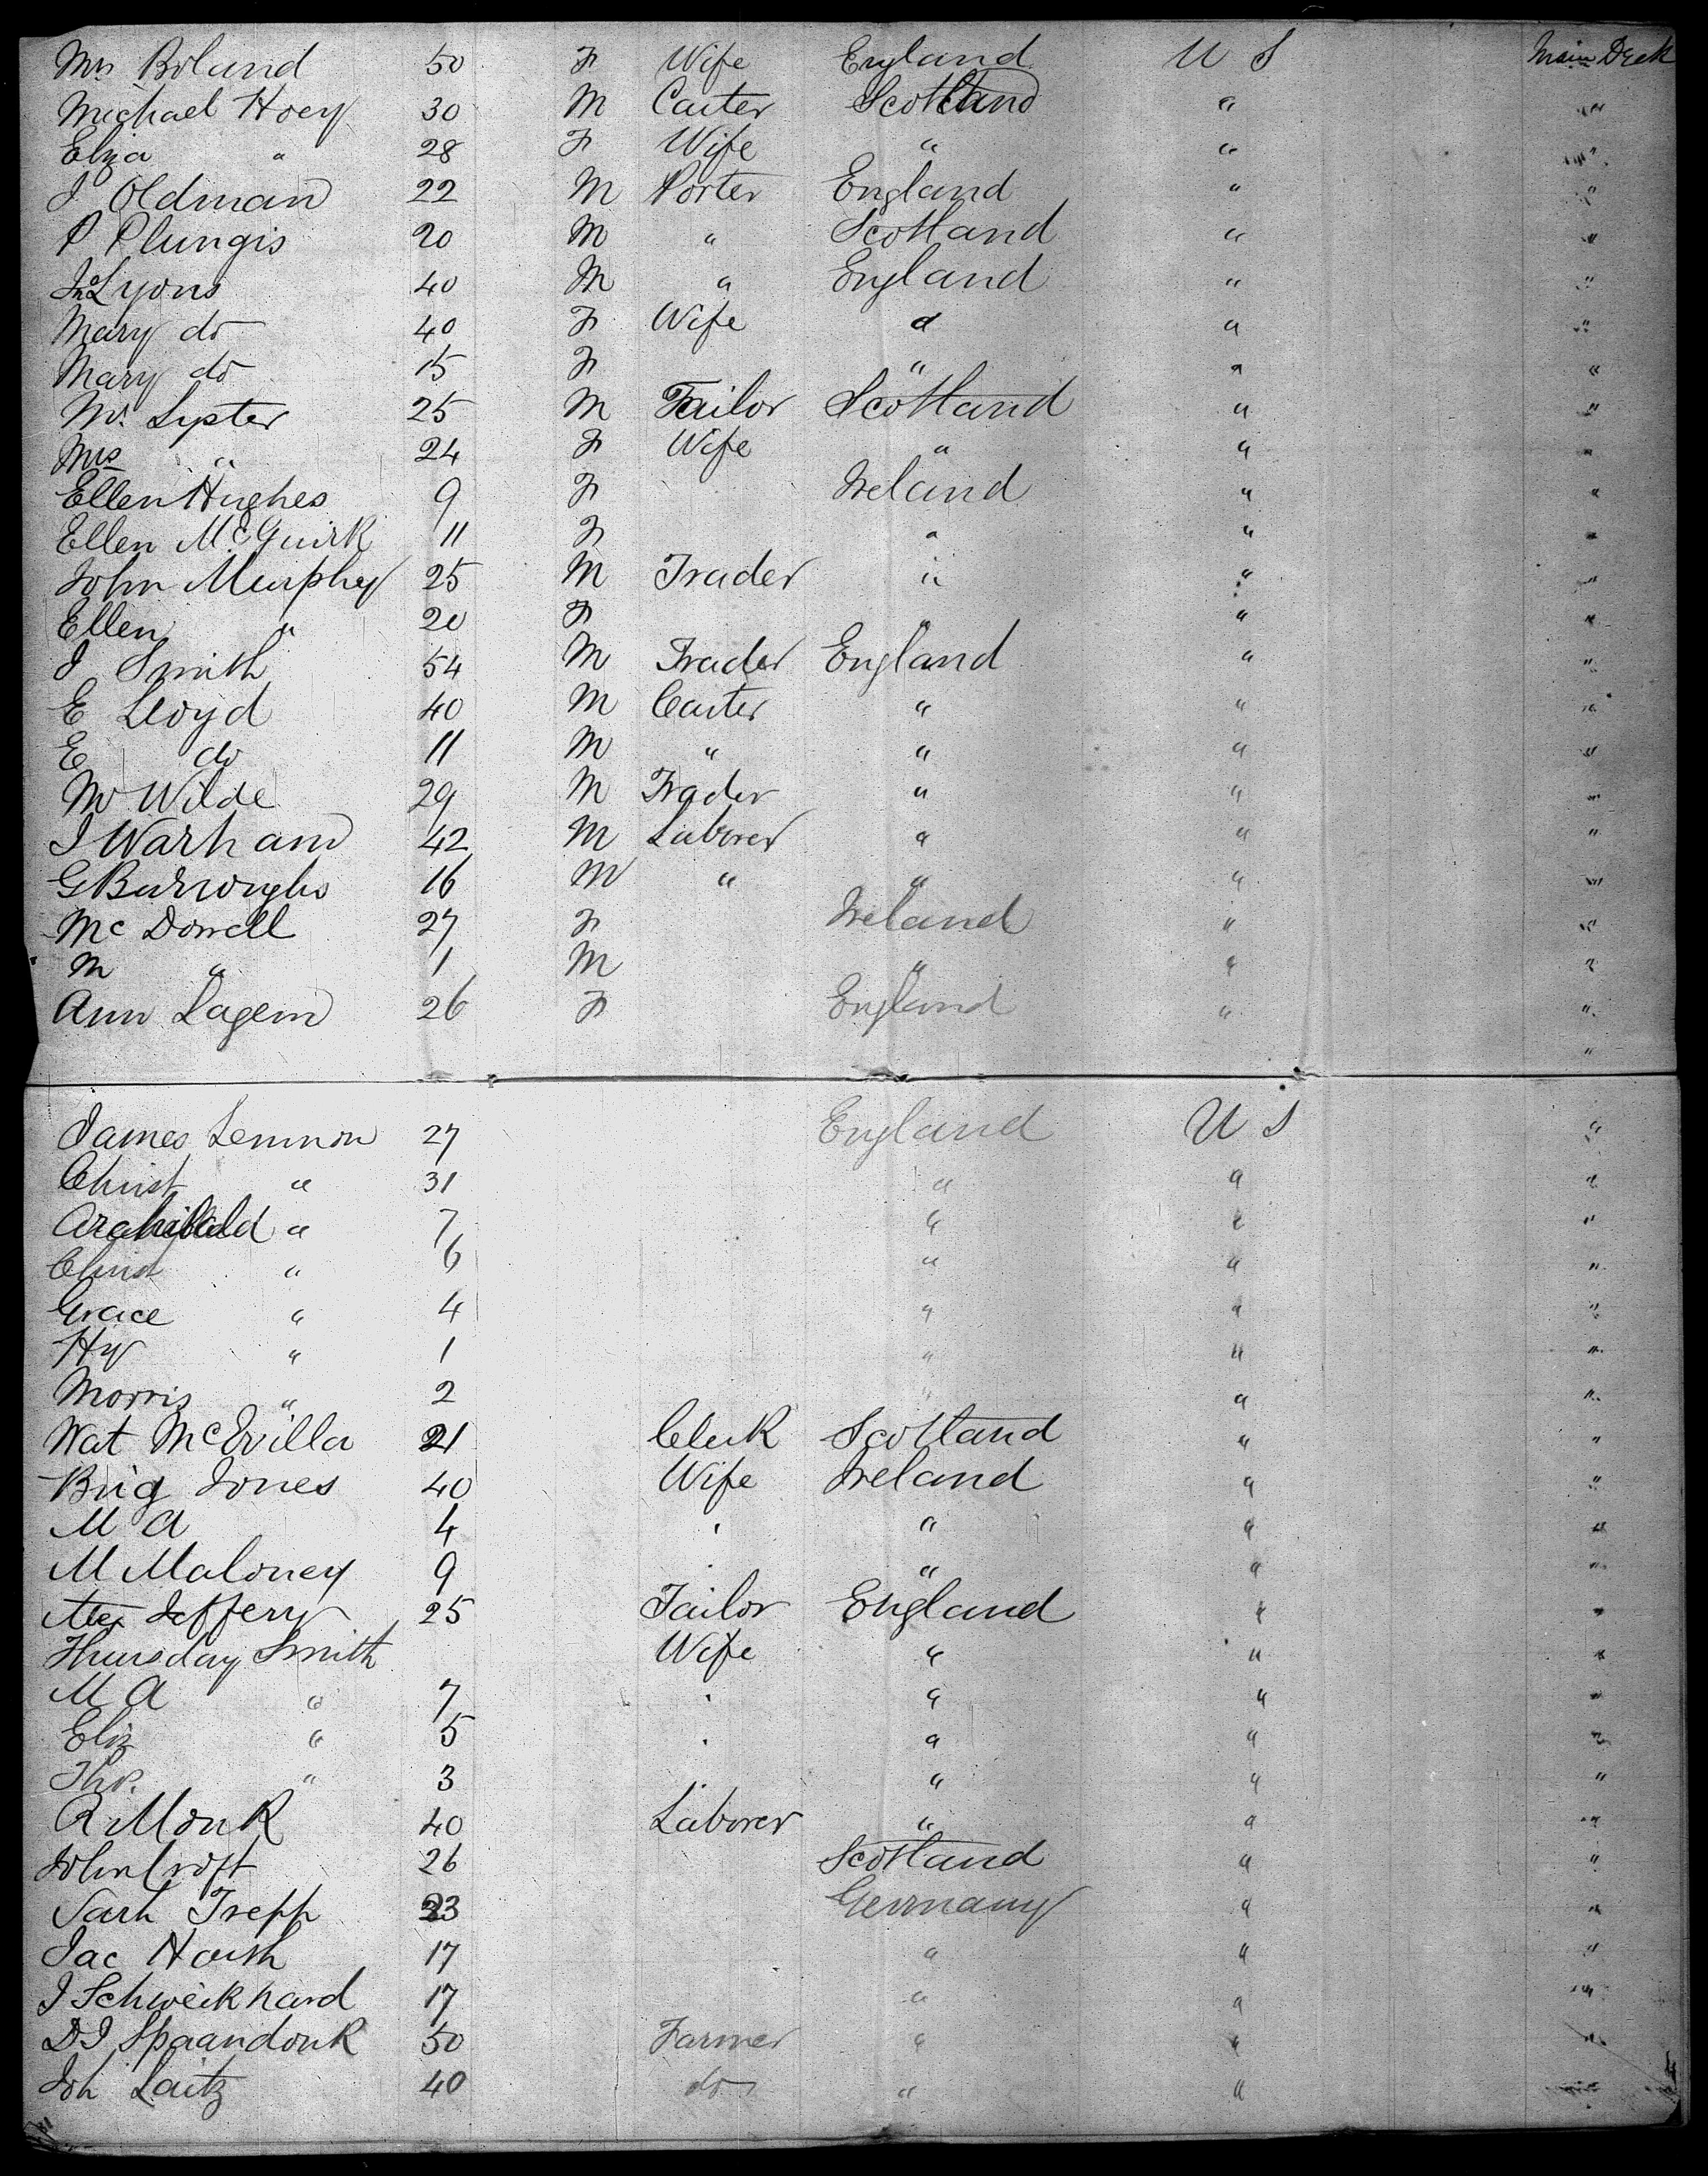 Mrs Boland 50 F Wife England U S Main Deck
Michael Hoey 30 M Carter Scotland " "
Eliza " 28 F Wife " " "
J Oldman 22 M Porter England " "
P Plungis 20 M " Scotland " "
Jno Lyons 40 M " England " "
Mary do 40 F Wife " " "
Mary do 15 F " " "
Mr. Lyster 25 M Tailor Scotland " "
Mrs " 24 F Wife " " "
Ellen Hughes 9 F Ireland " "
Ellen McGuirk 11 F " " "
John Murphy 25 M Trader " " "
Ellen " 20 F " " "
J Smith 54 M Trader England " "
E Lloyd 40 M Carter " " "
E do 11 M " " " "
M Wilde 29 M Trader " " "
J Warham 42 M Laborer " " "
G Burroughs 16 M " " " "
Mc Dowell 27 F Ireland " "
M " 1 M " " "
Ann Lagem 26 F England " "
"
James Lemmon 27 England U S "
Christ " 31 " " "
Archibald " 7 " " "
Christ " 6 " " "
Grace " 4 " " "
Hy " 1 " " "
Morris " 2 " " "
Wat McEvilla 21 Clerk Scotland " "
Brig Jones 40 Wife Ireland " "
M A 4 " " "
M Maloney 9 " " "
Jeffery 25 Tailor England " "
Thursday Smith Wife " " "
M A " 7 " " "
Eliz " 5 " " "
Tho. " 3 " " "
R Monk 40 Laborer " " "
John Croft 26 Scotland " "
Sarh Trepp 23 Germany " "
Jac Harsh 17 " " "
J Schweikhard 17 " " "
D J Spaandonk 50 Farmer " " "
Joh Laitz 40 do " " "